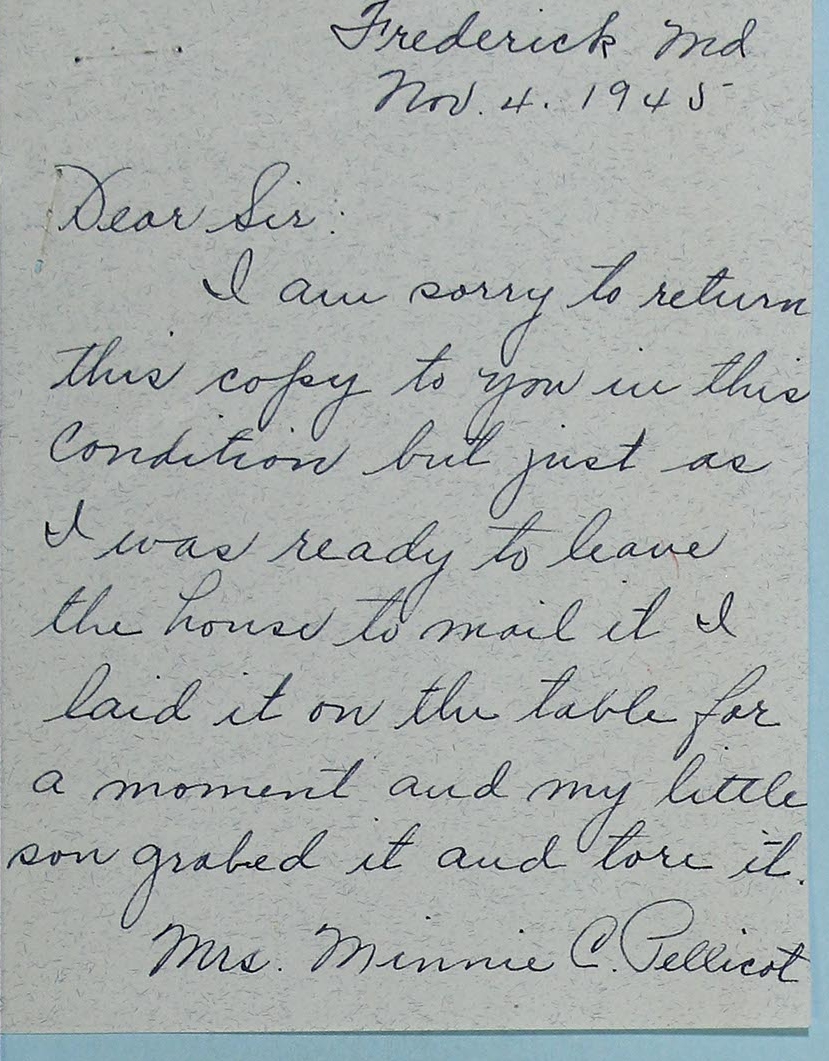 Frederick Md
Nov. 4. 1945
Dear Sir:
I am sorry to return
this copy to you in this
Condition but just as
I was ready to leave
the house to mail it I
laid it on the table for
a moment and my little
son grabed it and tore it.
Mrs. Minnie C. Pellicot